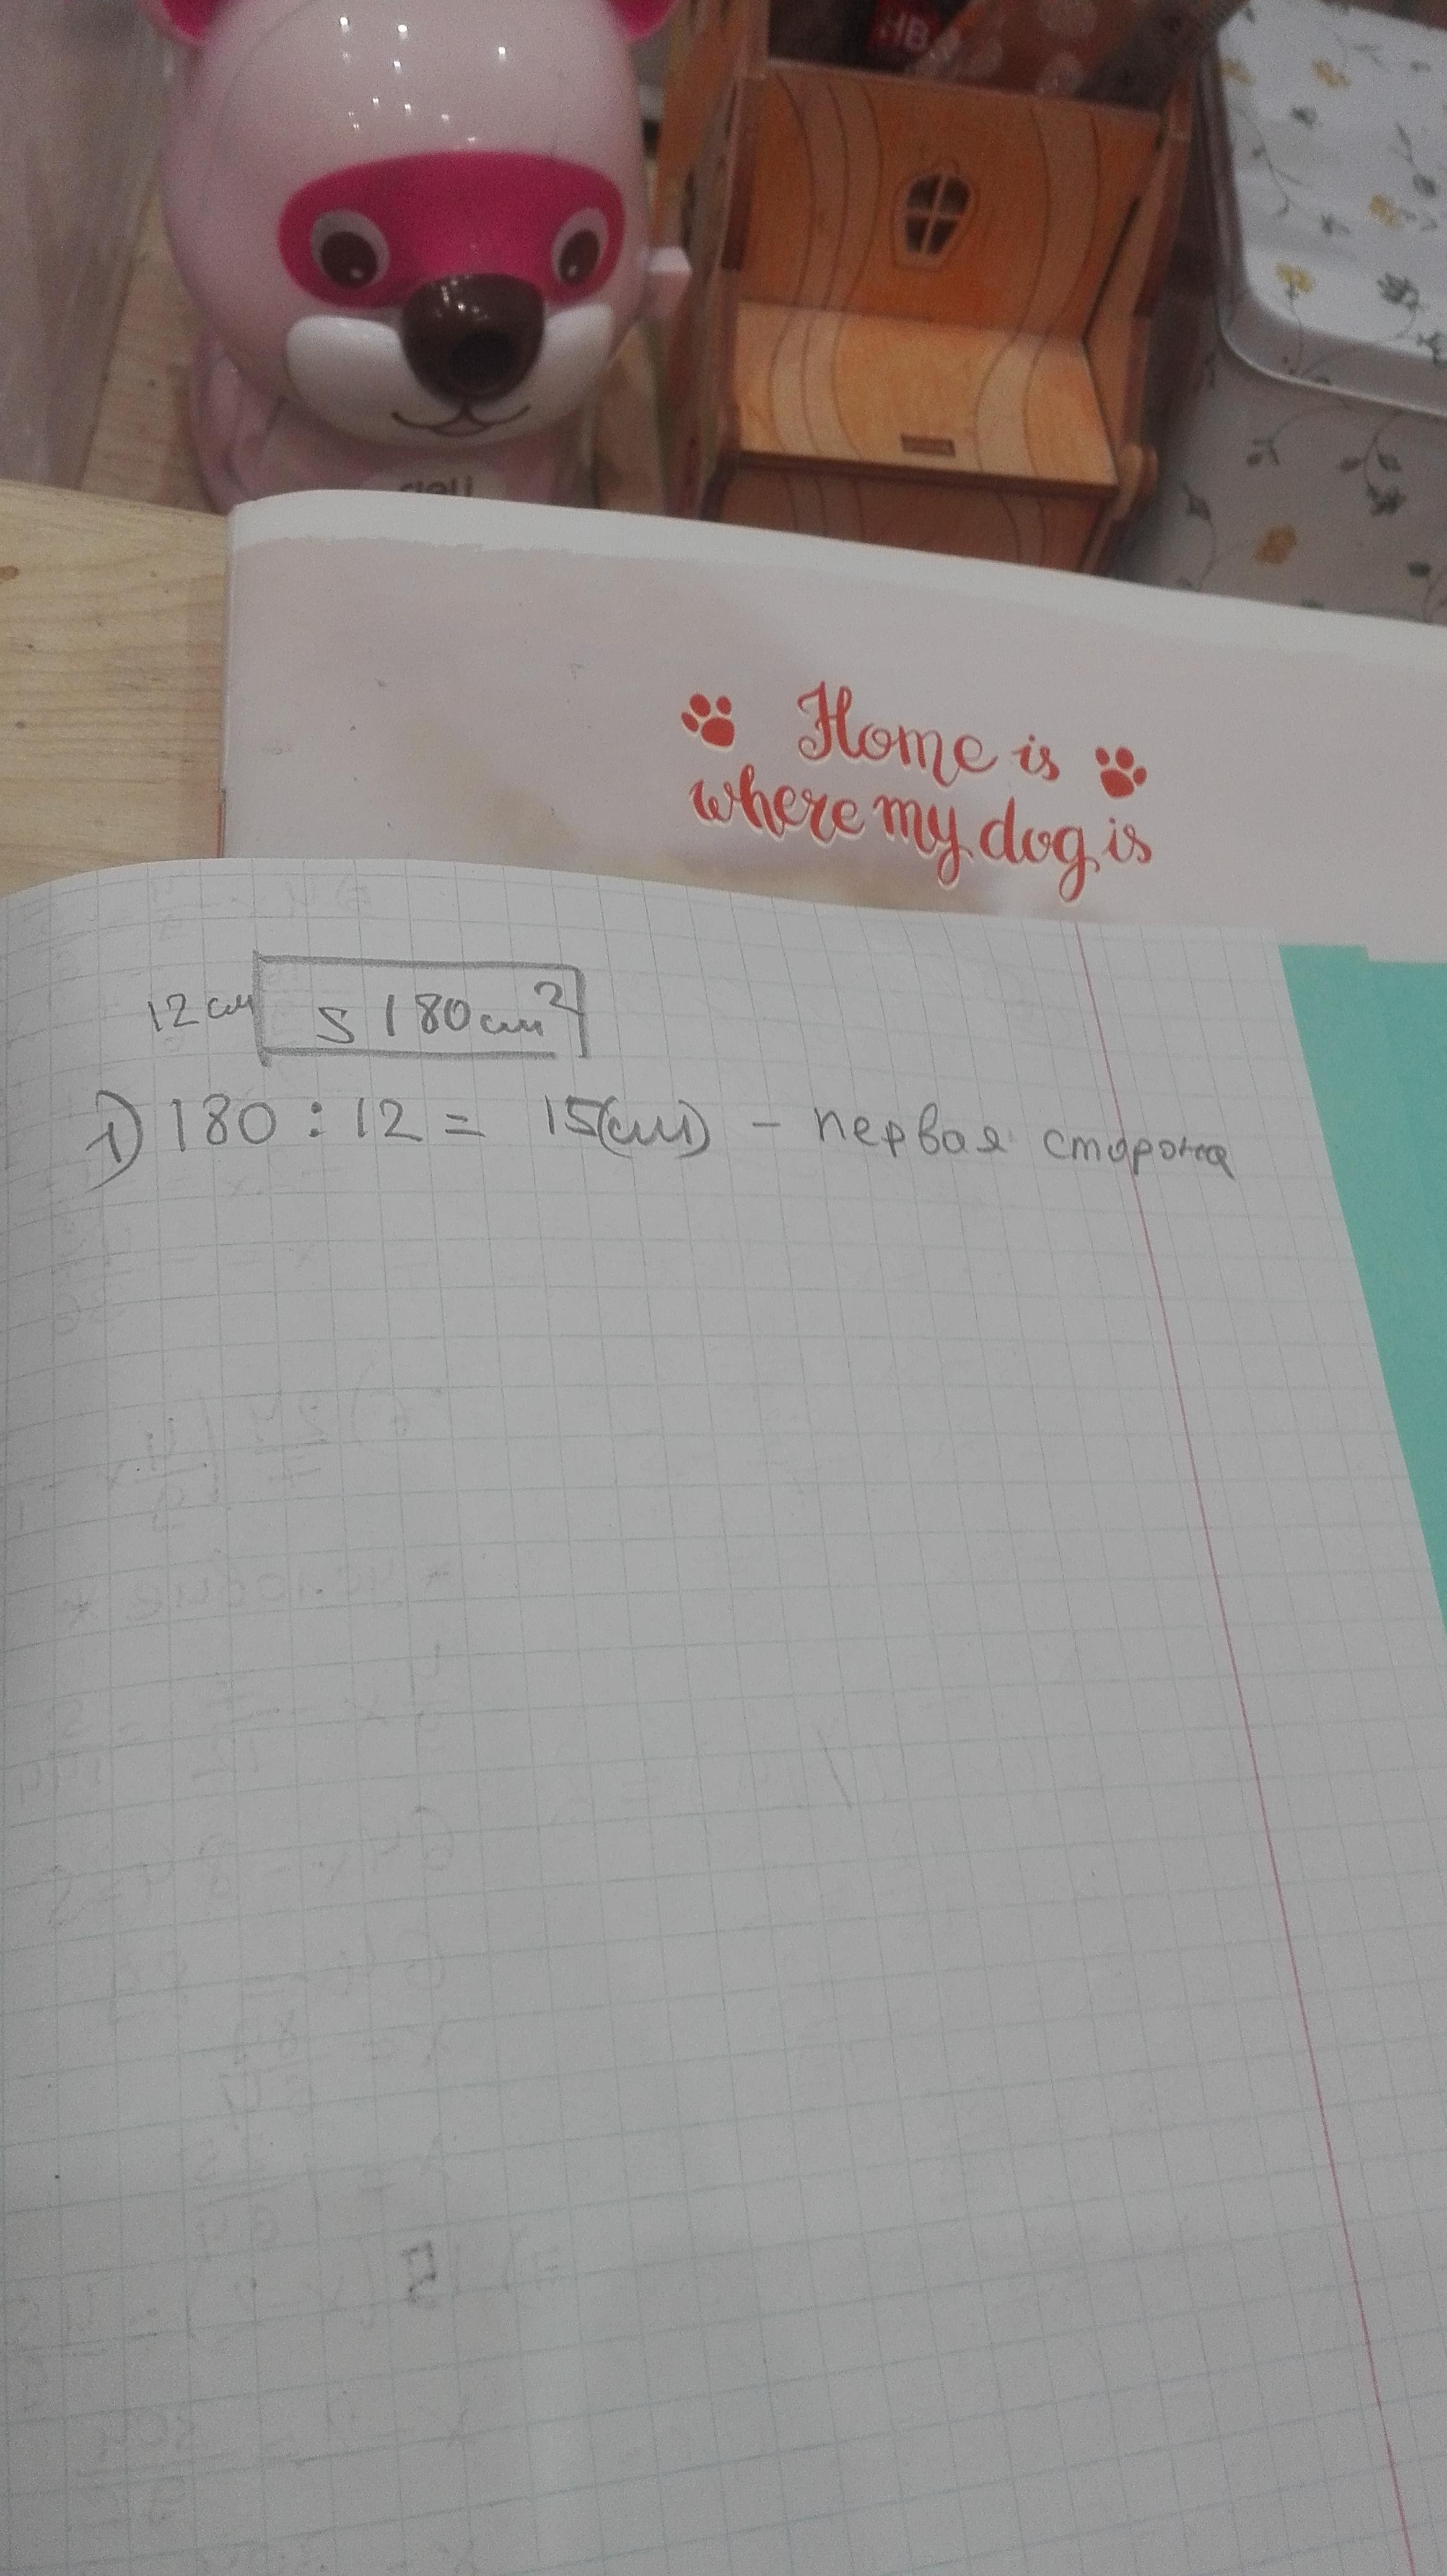 HB
deli
Home is
where my dog is
12 см
S 180 см²
1) 180 : 12 = 15(см) - первая сторона